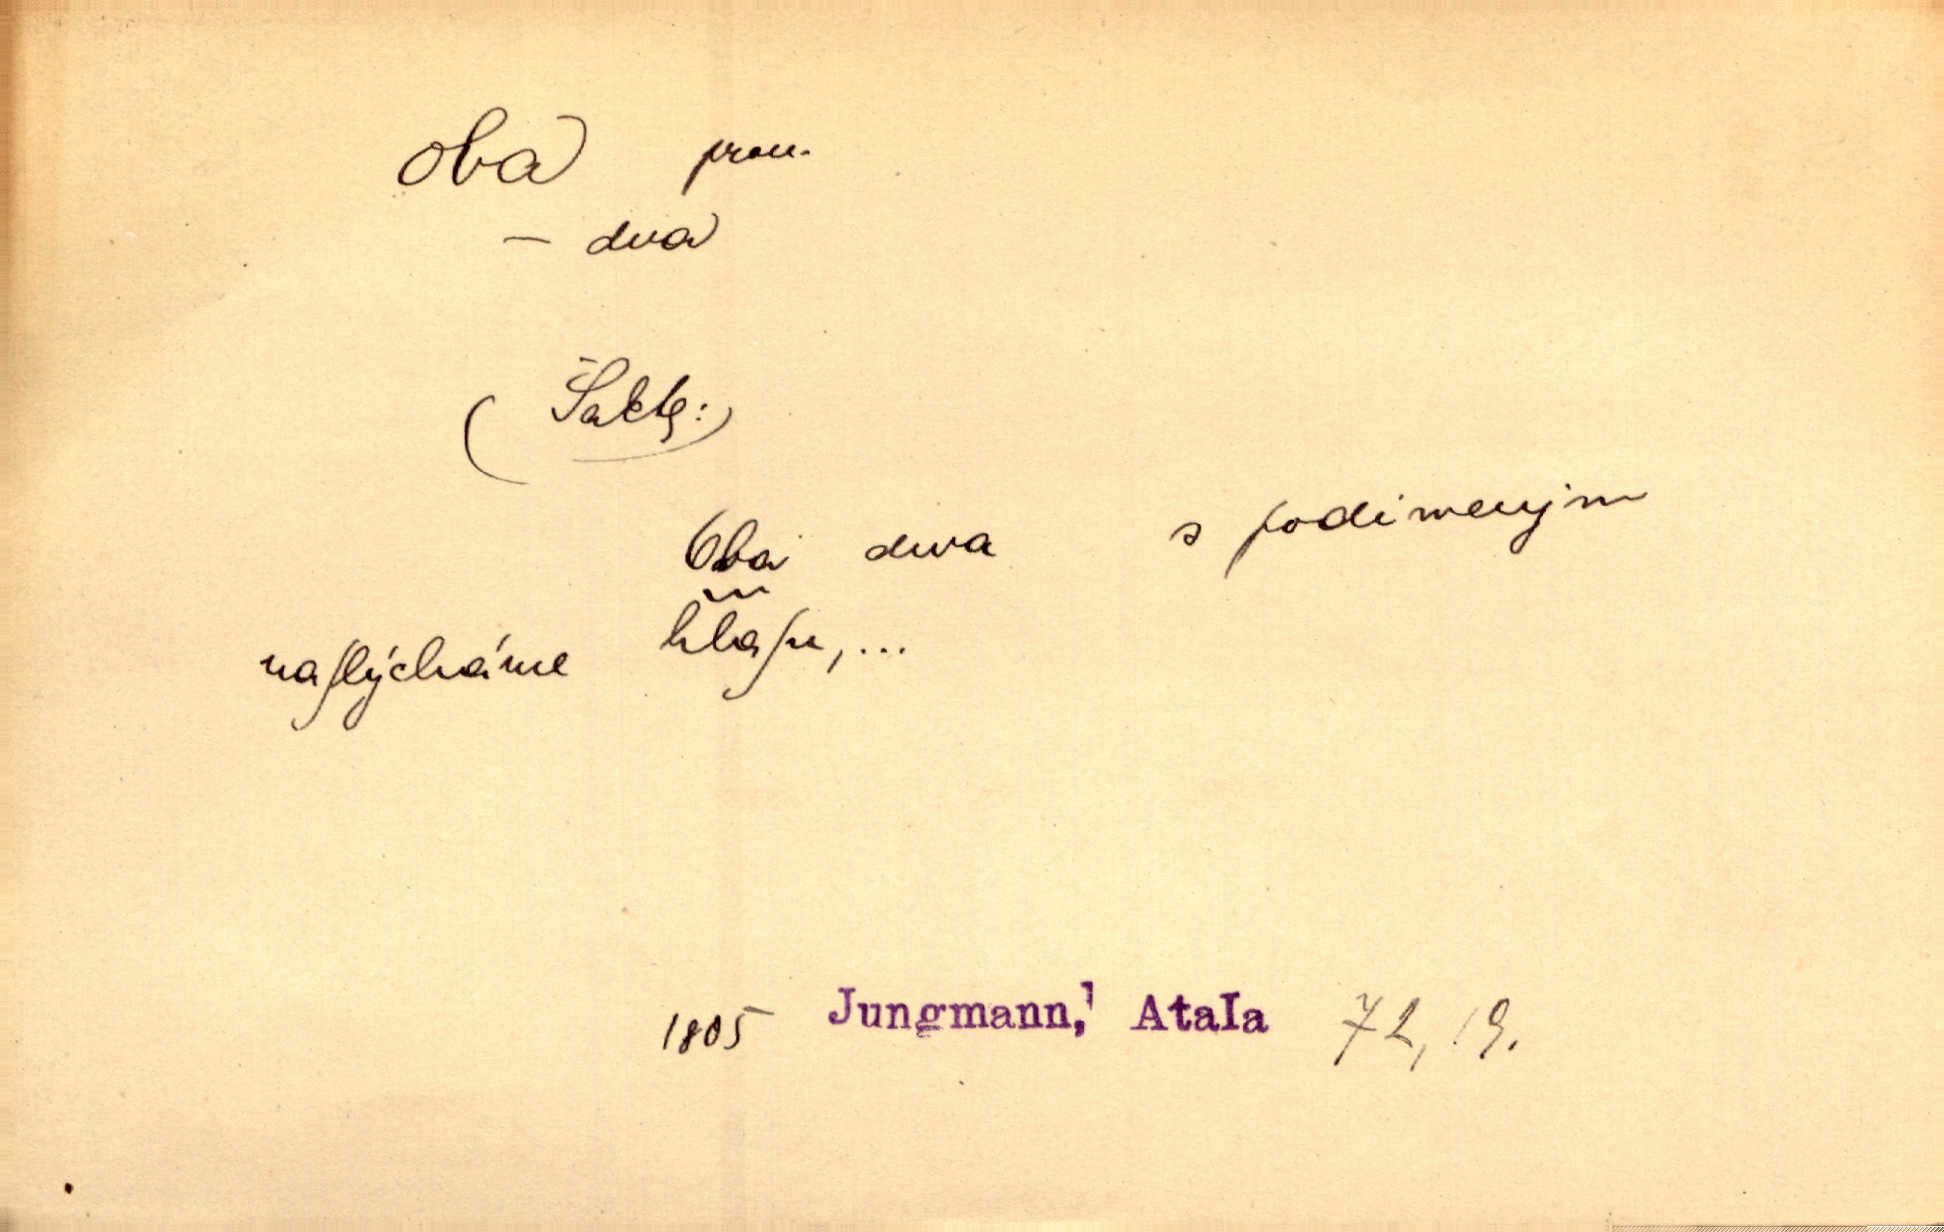 oba pron.
— dva
(Šakt:)
Oba dwa s podiwenjm
naſlýcháme hlaſu, ...
1805 Jungmann, Atala 72, 19.